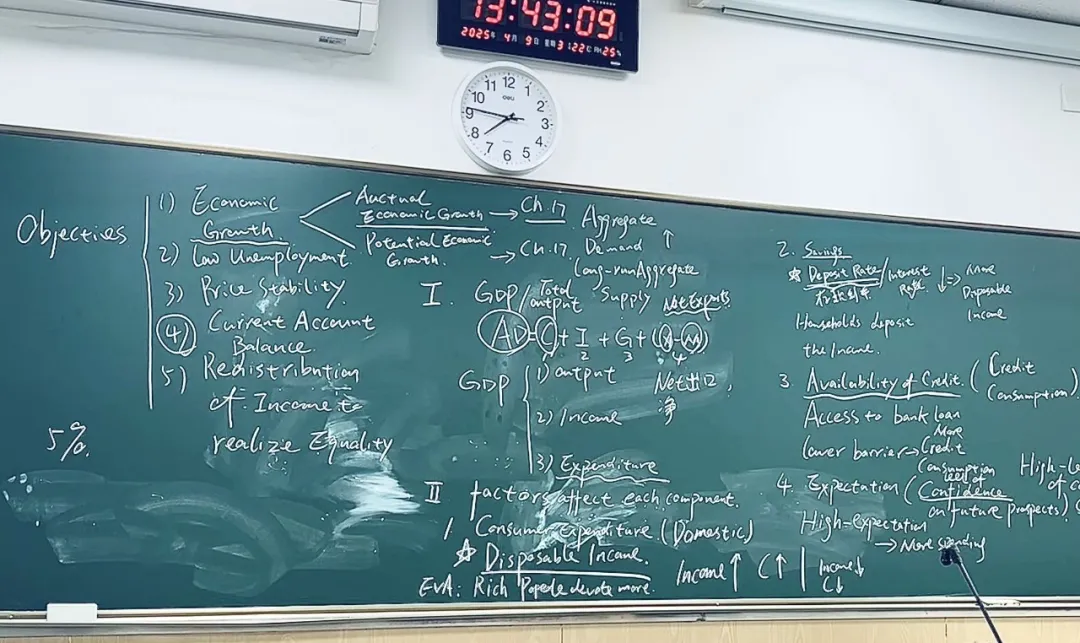 13:43:09
2025年 4月 9日 星期3 22℃ RH 25%
11 12 1
10 2
9 3
8 4
7 6 5
deli
Objectives
1) Economic
Growth
2) Low Unemployment.
3) Price Stability.
4) Current Account
Balance.
5) Redistribution
of Income to
realize Equality
5%.
Auctual
Economic Growth → Ch.17
Potential Economic
Growth. → Ch.17.
Aggregate
Demand ↑
Long-run Aggregate
Supply
I. GDP/Total output
Net Exports
AD = C + I + G + (X-M)
1 2 3 4
GDP
1) output
2) Income
3) Expenditure
Net出口,
净
II factors affect each component.
1. Consumer Expenditure (Domestic)
☆ Disposable Income.
EVA: Rich Popele devote more.
Income ↑ C ↑ | Income ↓
C ↓
2. Savings
☆ Deposit Rate/Interest Rate ↓ => More
Disposable
Income
Households deposit
the Income.
3. Availability of Credit. (Credit
Consumption)
Access to bank loan
lower barrier → More Credit
Consumption
4. Expectation (level of
Confidence
on future prospects)
High-expectation
→ More spending